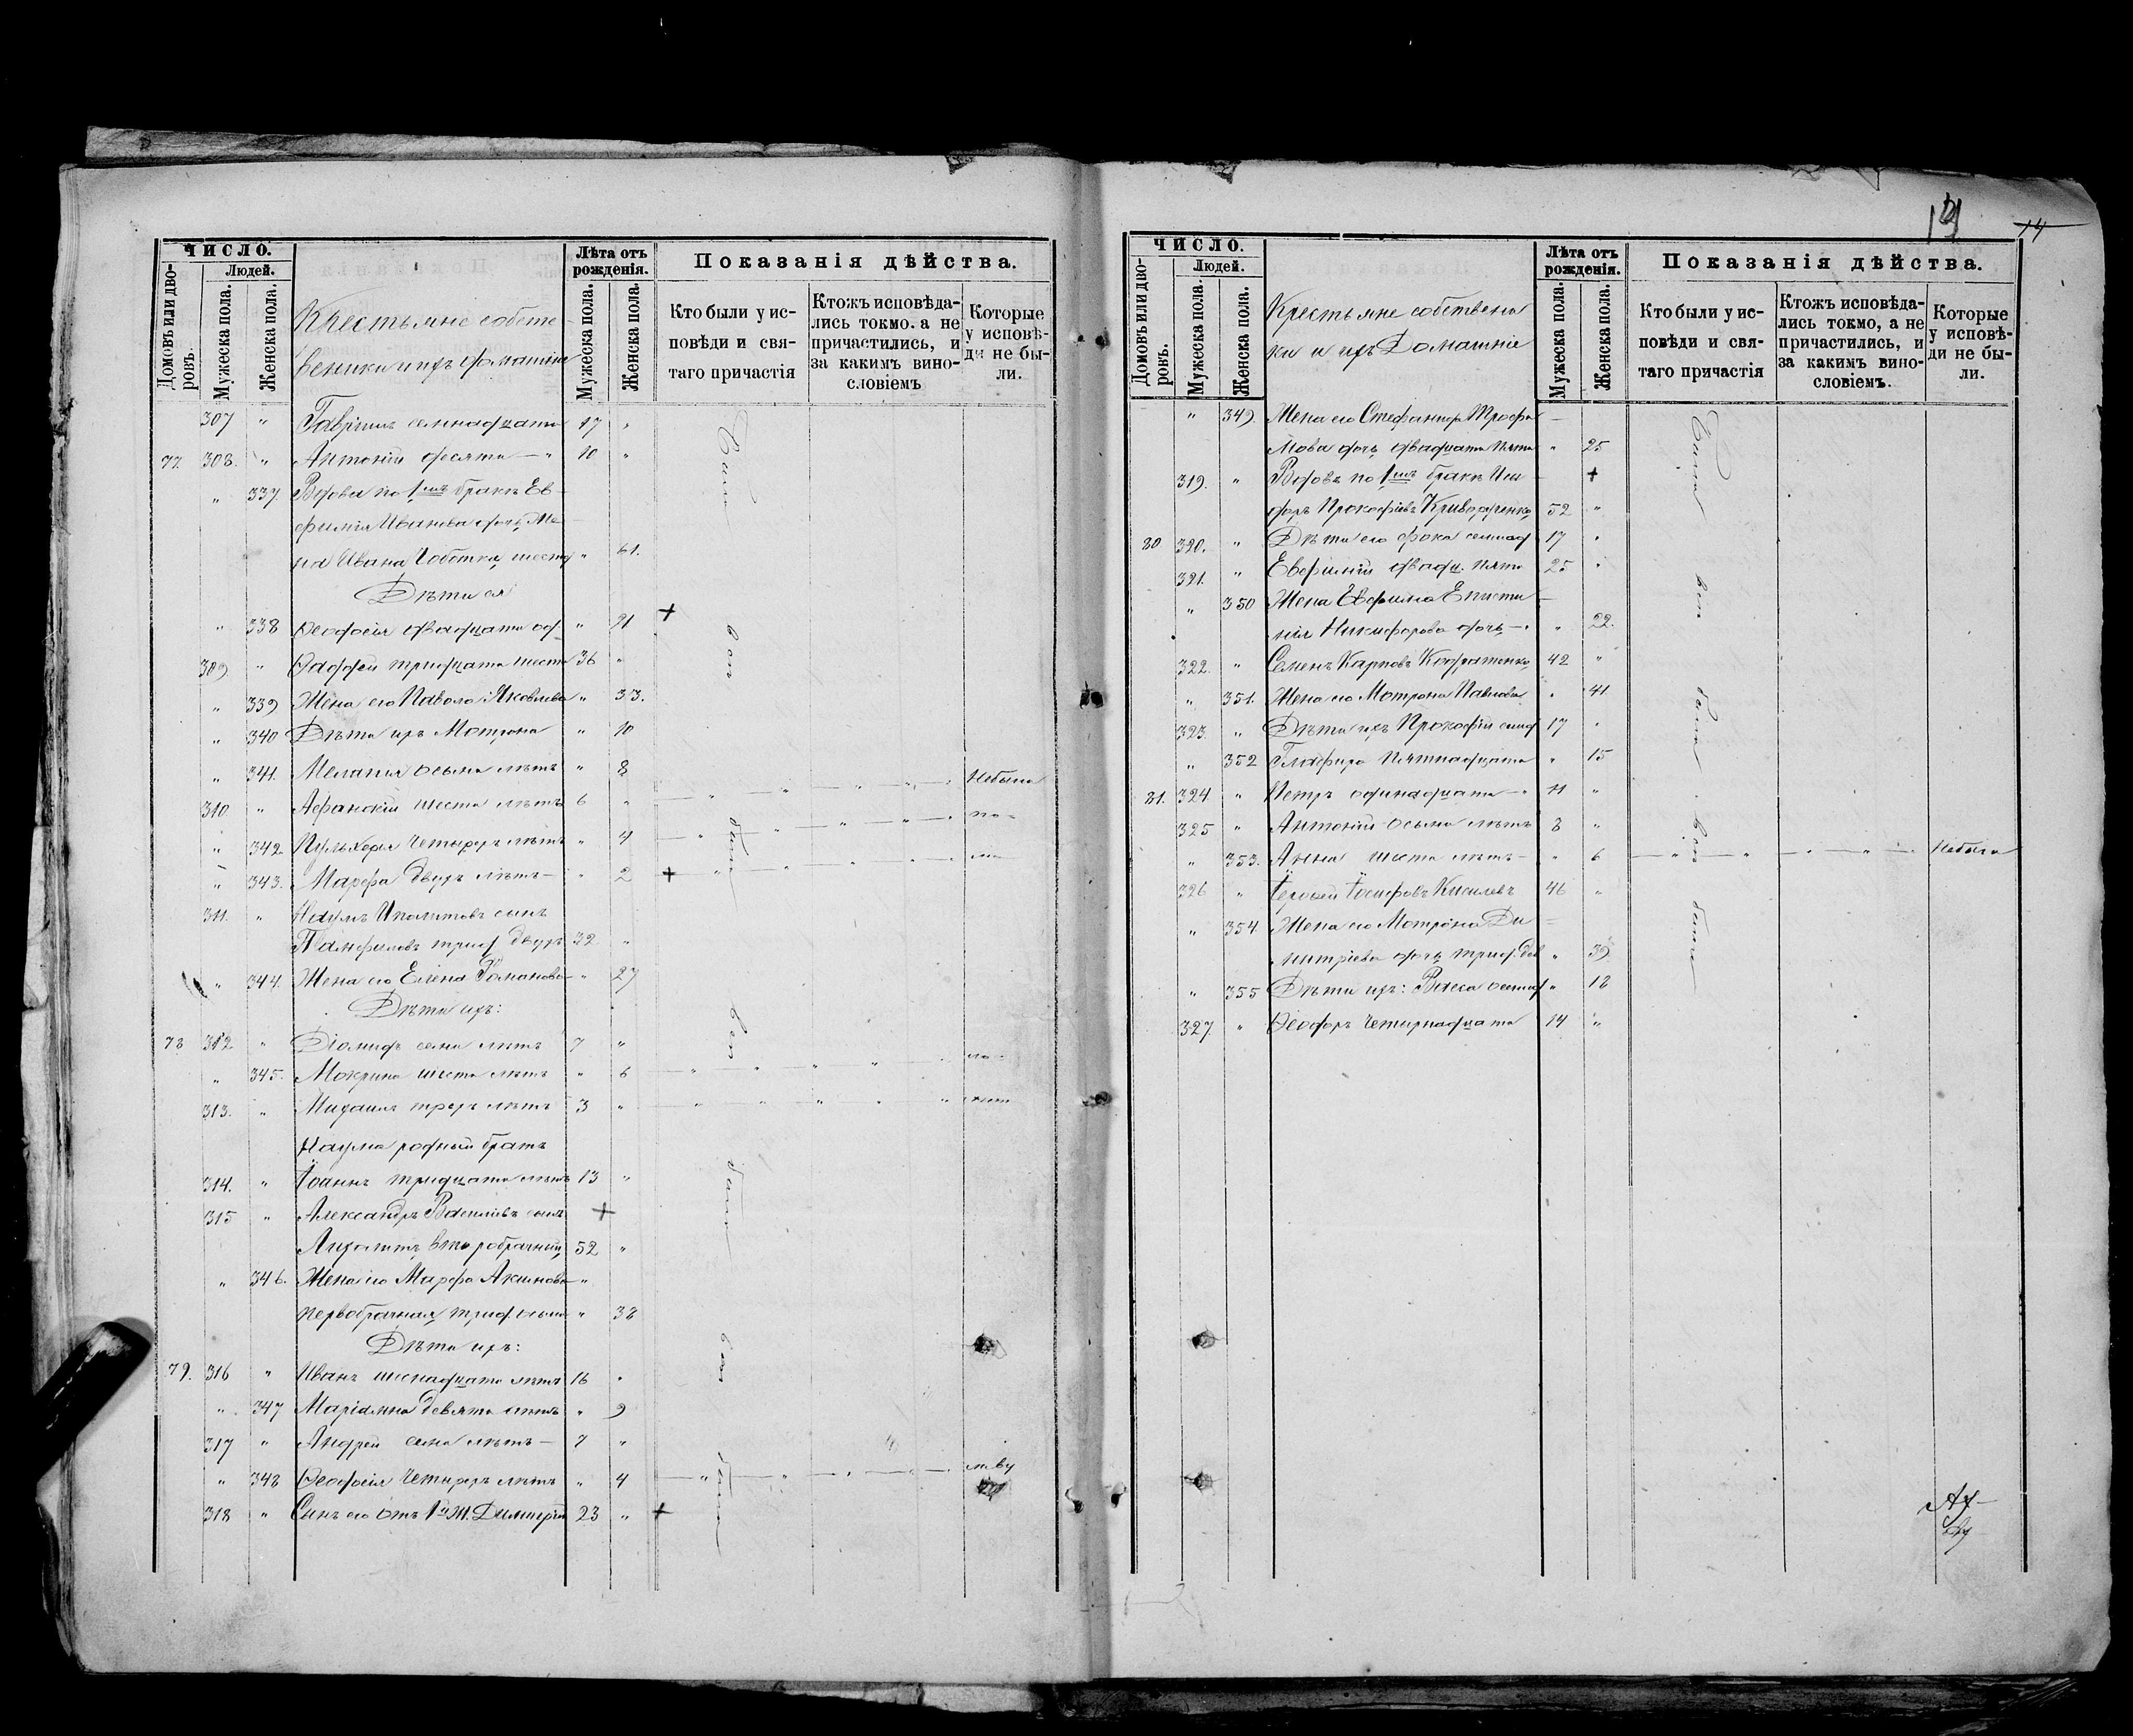 ЧИСЛО.
Людей.
Домовъ или дворовъ.
Мужеска пола.
Женска пола.
Крестьяне собстве-
венники и ихъ домашніе
Лѣта отъ рожденія.
Мужеска пола.
Женска пола.
Показанія дѣйства.
Кто были у исповѣди и святаго причастія
Ктожъ исповѣдались токмо. а не причастились, и за какимъ винословіемъ
Которые у исповѣди не были.
307 " Гавріилъ семнадцати 17 "
77. 308. " Антоній десяти — " 10 "
" 337. Вдова по 1мъ бракѣ Ев-
фимія Иванова дочь, Же-
на Ивана Чоботка, шестд " 61.
Дѣти ея
" 338 Ѳеодосія двадцати од " 21
309. " Ѳаддей тридцати шести 36 "
" 339 Жена его Павола Яковлева " 33.
" 340 Дѣти ихъ Мотрона " 10
" 341. Меланія осьми лѣтъ " 8 Небыла
310. " Афанасій шести лѣтъ 6 " по-
" 342 Пульхерія четырехъ лѣтъ " 4
" 343. Марфа двухъ лѣтъ — " 2
311. " Наумъ Иполитовъ сынъ
Памфиловъ трид. двухъ 32 "
" 344. Жена его Елена Романова — " 27
Дѣти ихъ:
78 312 " Діомидъ семи лѣтъ 7 "
" 345. Мокрина шести лѣтъ " 6 ло-
313. " Михаилъ трехъ лѣтъ 3 "
Наума родный братъ
314. " Іоаннъ тридцати лѣтъ 13 "
315 " Александръ Васильевъ сынъ
второбрачный, 52 "
" 346. Жена его Марфа Акимова — "
первобрачная, трид. осьми " 38
Дѣти ихъ:
79. 316 " Иванъ шеснадцати лѣтъ 16 "
" 347 Маріамна девяти лѣтъ " 9
317 " Андрей семи лѣтъ — 7 "
" 348 Ѳеодосія четырехъ лѣтъ " 4
318 " Сынъ его отъ 1й Ж. Димитрій 23 "
14
ЧИСЛО.
Людей.
Домовъ или дворовъ.
Мужеска пола.
Женска пола.
Крестьяне собствени
ки и ихъ Домашніе
Лѣта отъ рожденія.
Мужеска пола.
Женска пола.
Показанія дѣйства.
Кто были у исповѣди и святаго причастія
Ктожъ исповѣдались токмо, а не причастились, и за какимъ винословіемъ.
Которые у исповѣди не были.
" 349. Жена его Стефанида Трофи
мова дочь, двадцати пяти " 25
319. " Вдовъ по 1мъ бракѣ Иси-
доръ Прокофіевъ 52 "
80 320. " Дѣти его Фока семнад 17 "
321. " Евфимій двадц. пяти 25 "
" 350 Жена Евфима Еписти-
мія Никифорова дочь — " 22.
322. " Семенъ Карповъ Кондратенко, 42 "
" 351. Жена его Мотрона Павлова " 41
323. " Дѣти ихъ Прокофій семнд 17 "
" 352 Гликфира Пятнадцати " 15
81. 324 " Петръ одинадцати — 11 "
325 " Антоній осьми лѣтъ 8 "
" 353. Анна шести лѣтъ — " 6 Небыла
326 " Іосифовъ Киселевъ 46 "
" 354. Жена его Мотрона Ди-
митріева дочь трид. дев " 39
" 355 Дѣти ихъ: Васса осмнад " 18
327. " Ѳеодоръ Четырнадцати 14 "